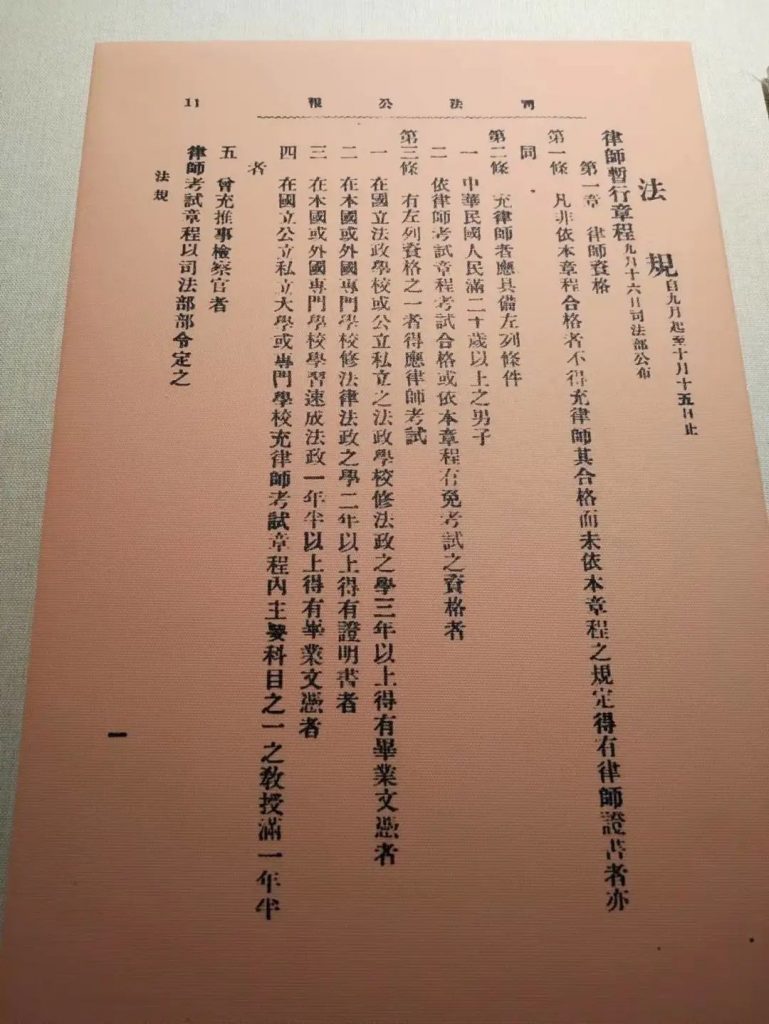 司法公報
11
法規 自九月起至十月十五日止
律師暫行章程 九月十六日司法部公布
第一章 律師資格
第一條 凡非依本章程合格者不得充律師其合格而未依本章程之規定得有律師證書者亦
同
第二條 充律師者應具備左列條件
一 中華民國人民滿二十歲以上之男子
二 依律師考試章程考試合格或依本章程有免考試之資格者
第三條 有左列資格之一者得應律師考試
一 在國立法政學校或公立私立之法政學校修法政之學三年以上得有畢業文憑者
二 在本國或外國專門學校修法律法政之學二年以上得有證明書者
三 在本國或外國專門學校學習速成法政一年半以上得有畢業文憑者
四 在國立公立私立大學或專門學校充律師考試章程內主要科目之一之教授滿一年半
者
五 曾充推事檢察官者
律師考試章程以司法部部令定之
法規
一